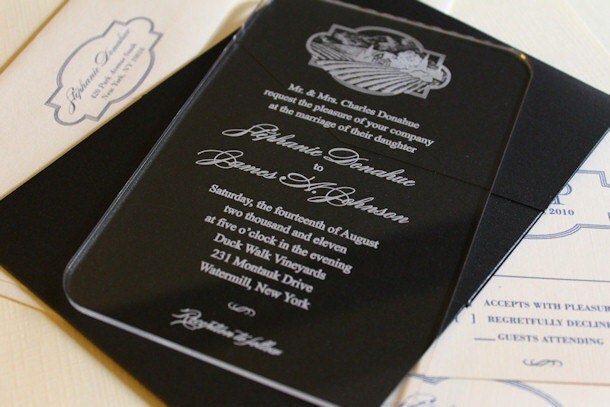 Stephanie Donahue
625 Park Avenue South
New York, NY 10010
Mr. & Mrs. Charles Donahue
request the pleasure of your company
at the marriage of their daughter
Stephanie Donahue
to
James A. Johnson
Saturday, the fourteenth of August
two thousand and eleven
at five o'clock in the evening
Duck Walk Vineyards
231 Montauk Drive
Watermill, New York
Reception to follow
P
2010
ACCEPTS WITH PLEASUR
REGRETFULLY DECLINE
GUESTS ATTENDING